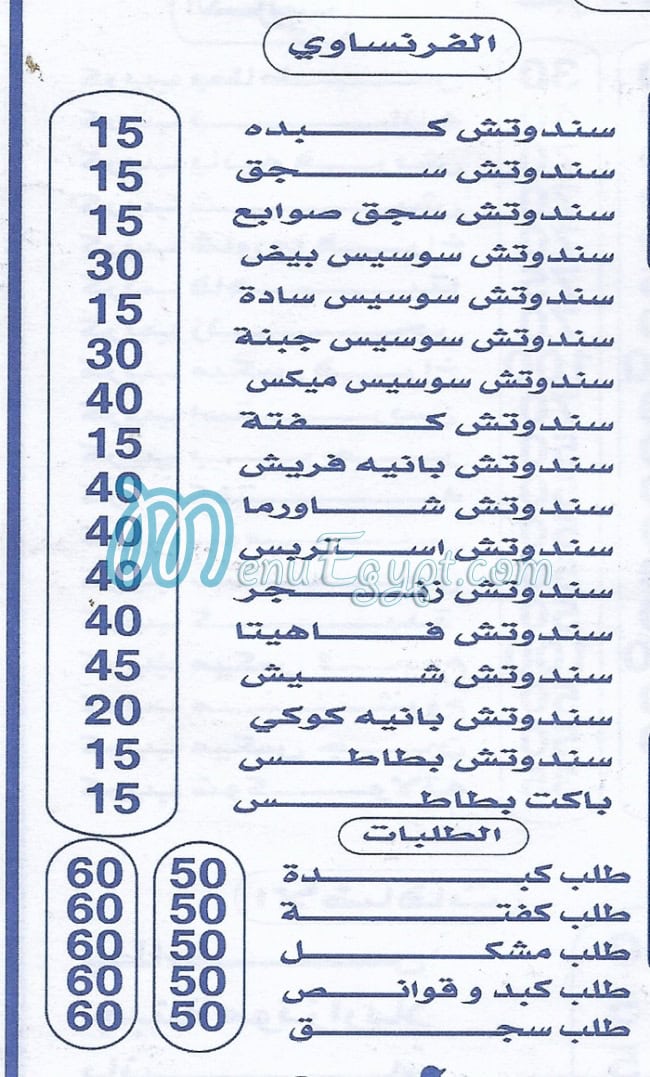 الفرنساوي
سندوتش كبده
سندوتش سجق
سندوتش سجق صوابع
سندوتش سوسيس بيض
سندوتش سوسيس سادة
سندوتش سوسيس جبنة
سندوتش سوسيس ميكس
سندوتش كفتة
سندوتش بانيه فريش
سندوتش شاورما
سندوتش استربس
سندوتش زنجر
سندوتش فاهيتا
سندوتش شيش
سندوتش بانيه كوكي
سندوتش بطاطس
باكت بطاطس
15
15
15
30
15
30
40
15
40
40
40
40
45
20
15
15
MenuEgypt.com
الطلبات
طلب كبدة 50 60
طلب كفتة 50 60
طلب مشكل 50 60
طلب كبد و قوانص 50 60
طلب سجق 50 60